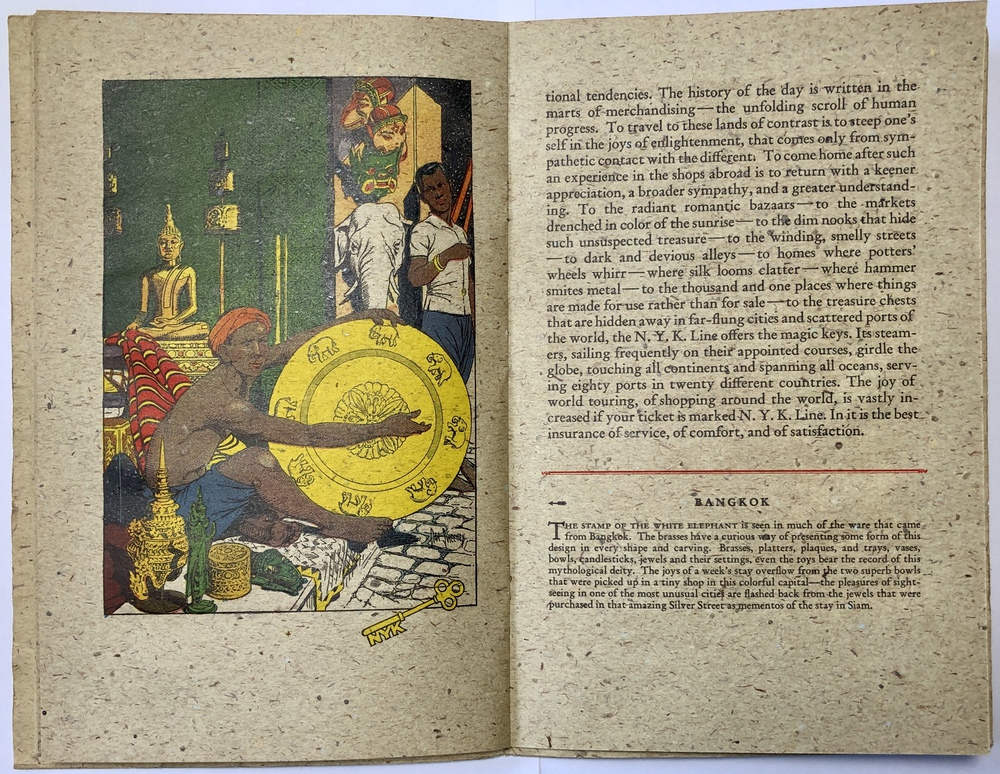 NYK
tional tendencies. The history of the day is written in the
marts of merchandising—the unfolding scroll of human
progress. To travel to these lands of contrast is to steep one's
self in the joys of enlightenment, that comes only from sym-
pathetic contact with the different. To come home after such
an experience in the shops abroad is to return with a keener
appreciation, a broader sympathy, and a greater understand-
ing. To the radiant romantic bazaars—to the markets
drenched in color of the sunrise—to the dim nooks that hide
such unsuspected treasure—to the winding, smelly streets
—to dark and devious alleys—to homes where potters'
wheels whirr—where silk looms clatter—where hammer
smites metal—to the thousand and one places where things
are made for use rather than for sale—to the treasure chests
that are hidden away in far-flung cities and scattered ports of
the world, the N. Y. K. Line offers the magic keys. Its steam-
ers, sailing frequently on their appointed courses, girdle the
globe, touching all continents and spanning all oceans, serv-
ing eighty ports in twenty different countries. The joy of
world touring, of shopping around the world, is vastly in-
creased if your ticket is marked N. Y. K. Line. In it is the best
insurance of service, of comfort, and of satisfaction.
BANGKOK
THE STAMP OF THE WHITE ELEPHANT is seen in much of the ware that came
from Bangkok. The brasses have a curious way of presenting some form of this
design in every shape and carving. Brasses, platters, plaques, and trays, vases,
bowls, candlesticks, jewels and their settings, even the toys bear the record of this
mythological deity. The joys of a week's stay overflow from the two superb bowls
that were picked up in a tiny shop in this colorful capital—the pleasures of sight-
seeing in one of the most unusual cities are flashed back from the jewels that were
purchased in that amazing Silver Street as mementos of the stay in Siam.